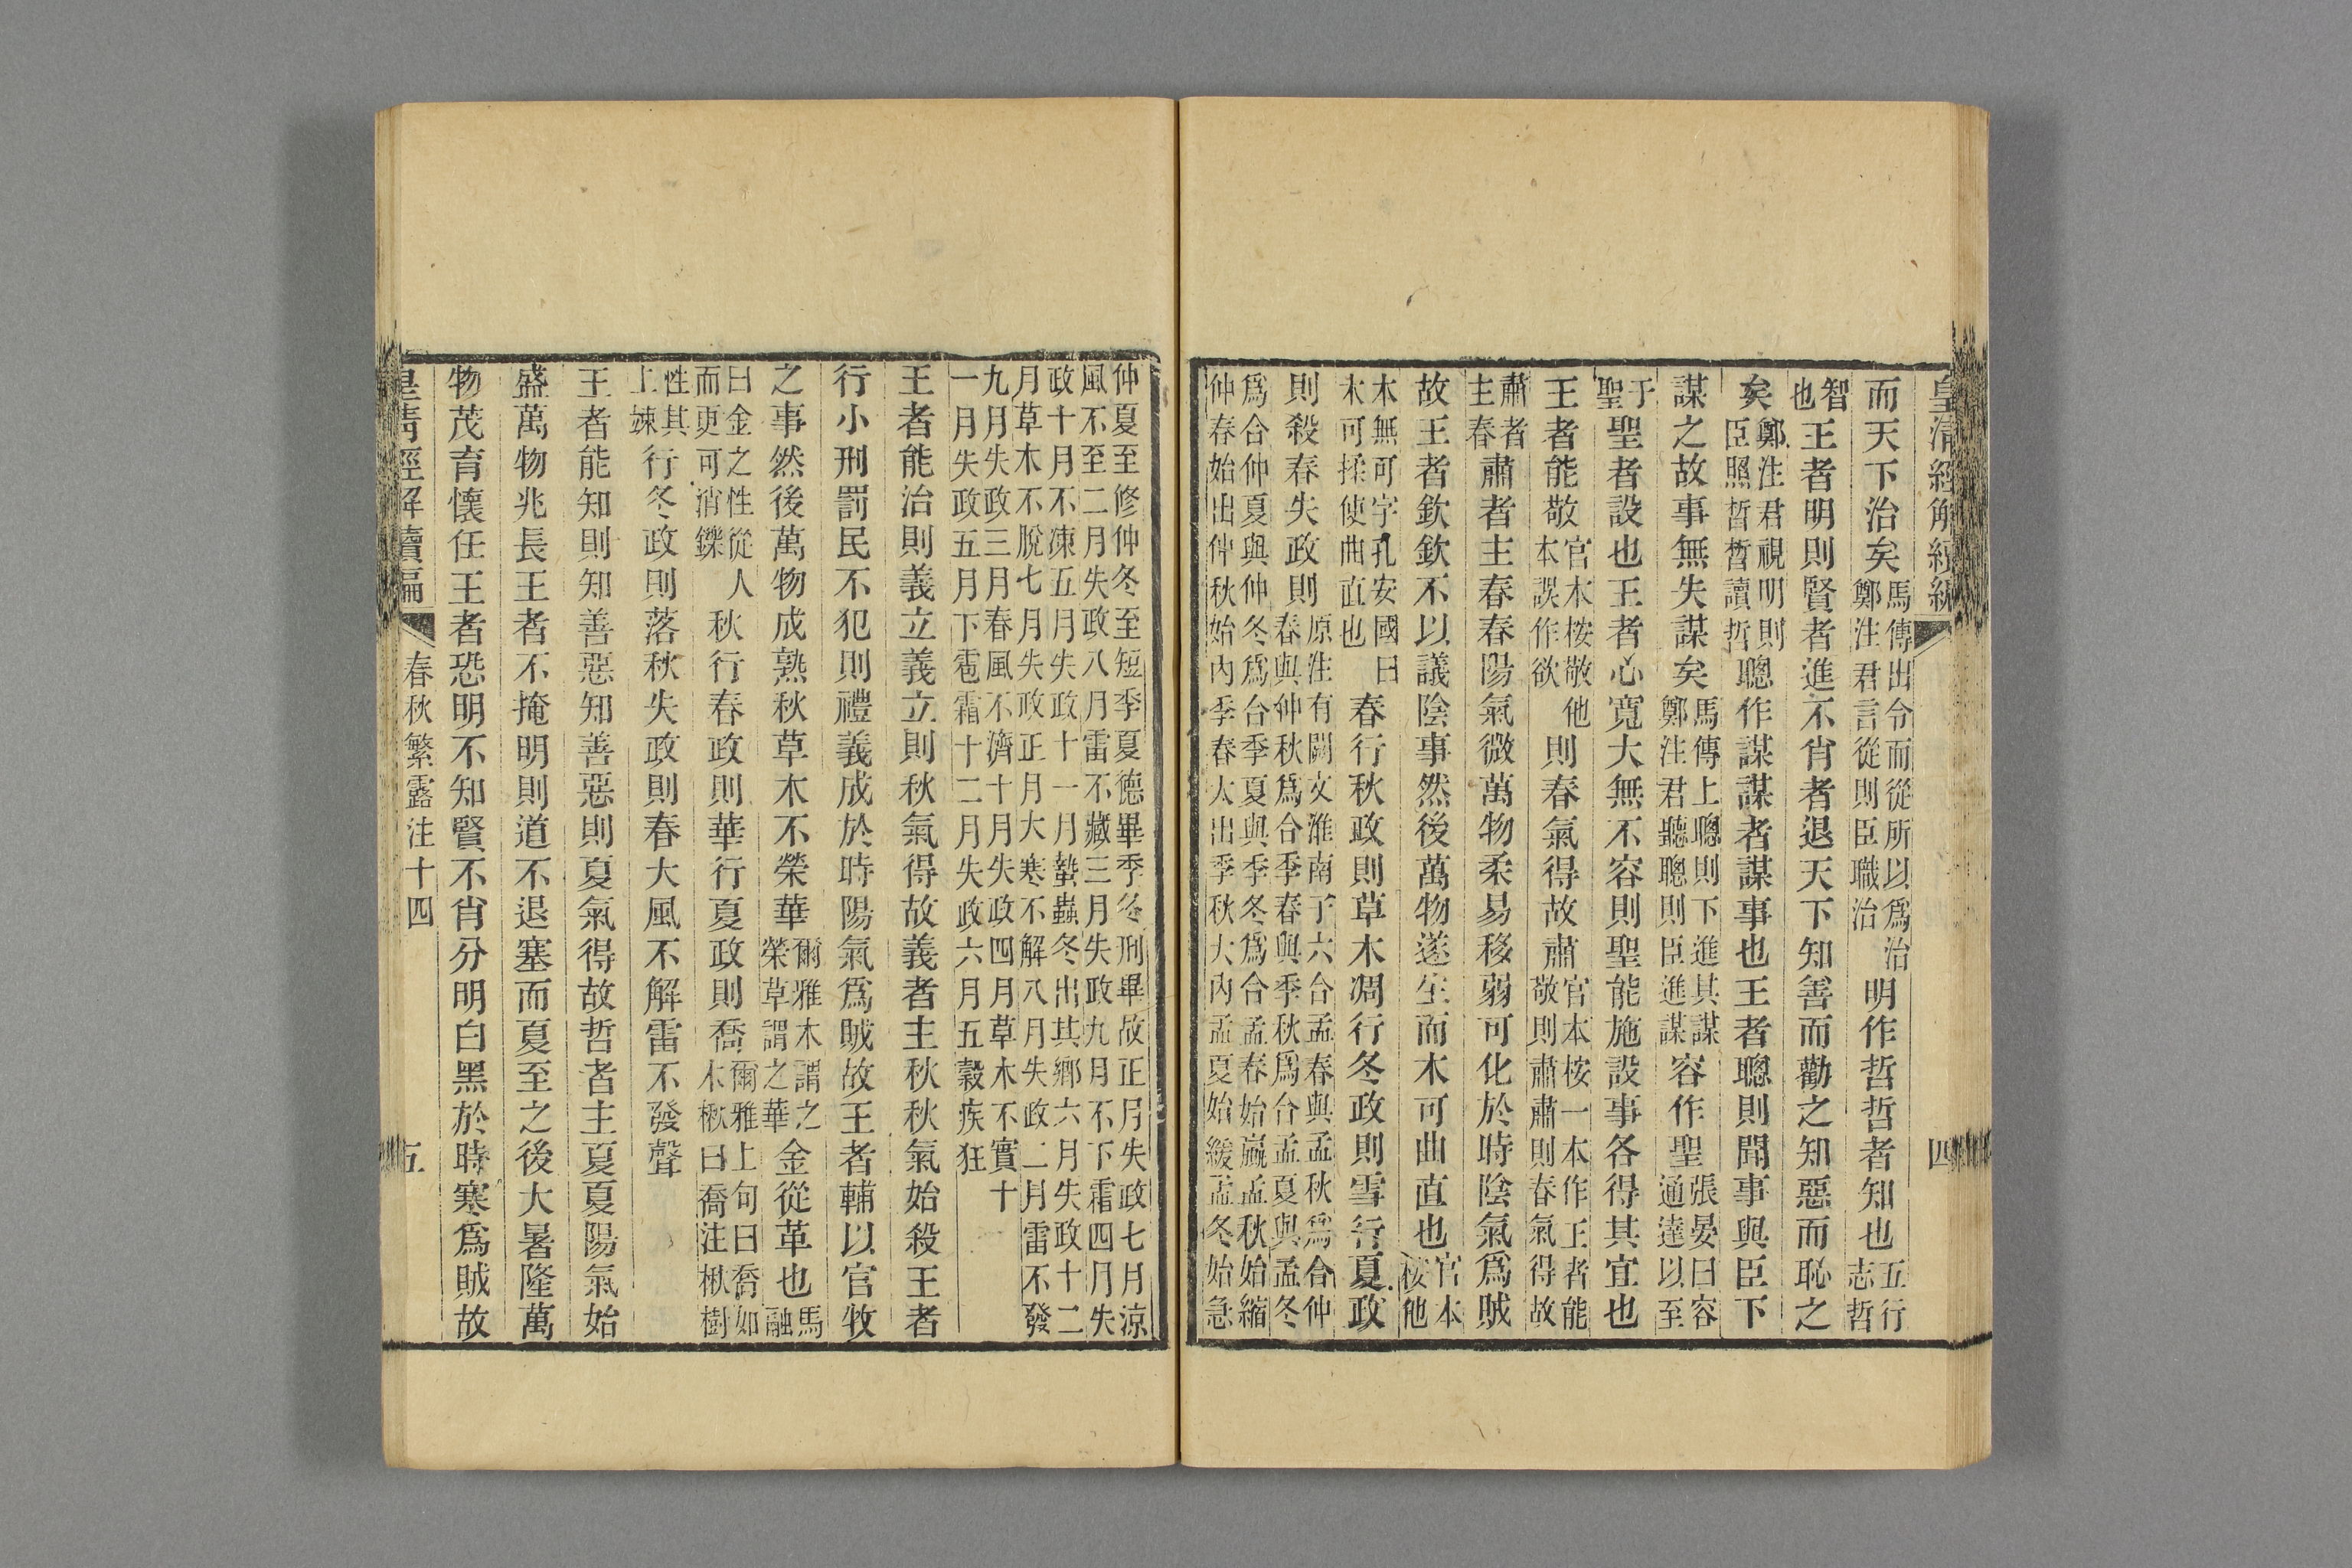 皇清經解續編　四
而天下治矣馬傳出令而從所以爲治鄭注君言從則臣職治明作哲哲者知也五行志哲
智也王者明則賢者進不肖者退天下知善而勸之知惡而恥之
矣鄭注君視明則臣照晳晳讀哲聰作謀謀者謀事也王者聰則聞事與臣下
謀之故事無失謀矣馬傳上聰則下進其謀鄭注君聽聰則臣進謀容作聖張晏曰容通達以至
于聖聖者設也王者心寬大無不容則聖能施設事各得其宜也
王者能敬官本桉敬他本誤作欲則春氣得故肅官本桉一本作王者能敬則肅肅則春氣得故
肅者主春肅者主春春陽氣微萬物柔易移弱可化於時陰氣爲賊
故王者欽欽不以議陰事然後萬物遂生而木可曲直也官本桉他
本無可字孔安國曰木可揉使曲直也春行秋政則草木凋行冬政則雪行夏政
則殺春失政則原注有闕文淮南子六合孟春與孟秋爲合仲春與仲秋爲合季春與季秋爲合孟夏與孟冬
爲合仲夏與仲冬爲合季夏與季冬爲合孟春始贏孟秋始縮仲春始出仲秋始內季春大出季秋大內孟夏始緩孟冬始急
仲夏至修仲冬至短季夏德畢季冬刑畢故正月失政七月涼風不至二月失政八月雷不藏三月失政九月不下霜四月失
政十月不凍五月失政十一月蟄蟲冬出其鄉六月失政十二月草木不脫七月失政正月大寒不解八月失政二月雷不發
九月失政三月春風不濟十月失政四月草木不實十一月失政五月下雹霜十二月失政六月五穀疾狂
王者能治則義立義立則秋氣得故義者主秋秋氣始殺王者
行小刑罰民不犯則禮義成於時陽氣爲賊故王者輔以官牧
之事然後萬物成熟秋草木不榮華爾雅木謂之華草謂之榮金從革也馬融
曰金之性從人而更可消鑠秋行春政則華行夏政則喬爾雅上句曰喬如木楸曰喬注楸樹
性其上竦行冬政則落秋失政則春大風不解雷不發聲
王者能知則知善惡知善惡則夏氣得故哲者主夏夏陽氣始
盛萬物兆長王者不掩明則道不退塞而夏至之後大暑隆萬
物茂育懷任王者恐明不知賢不肖分明白黑於時寒爲賊故
皇清經解續編　春秋繁露注十四　五